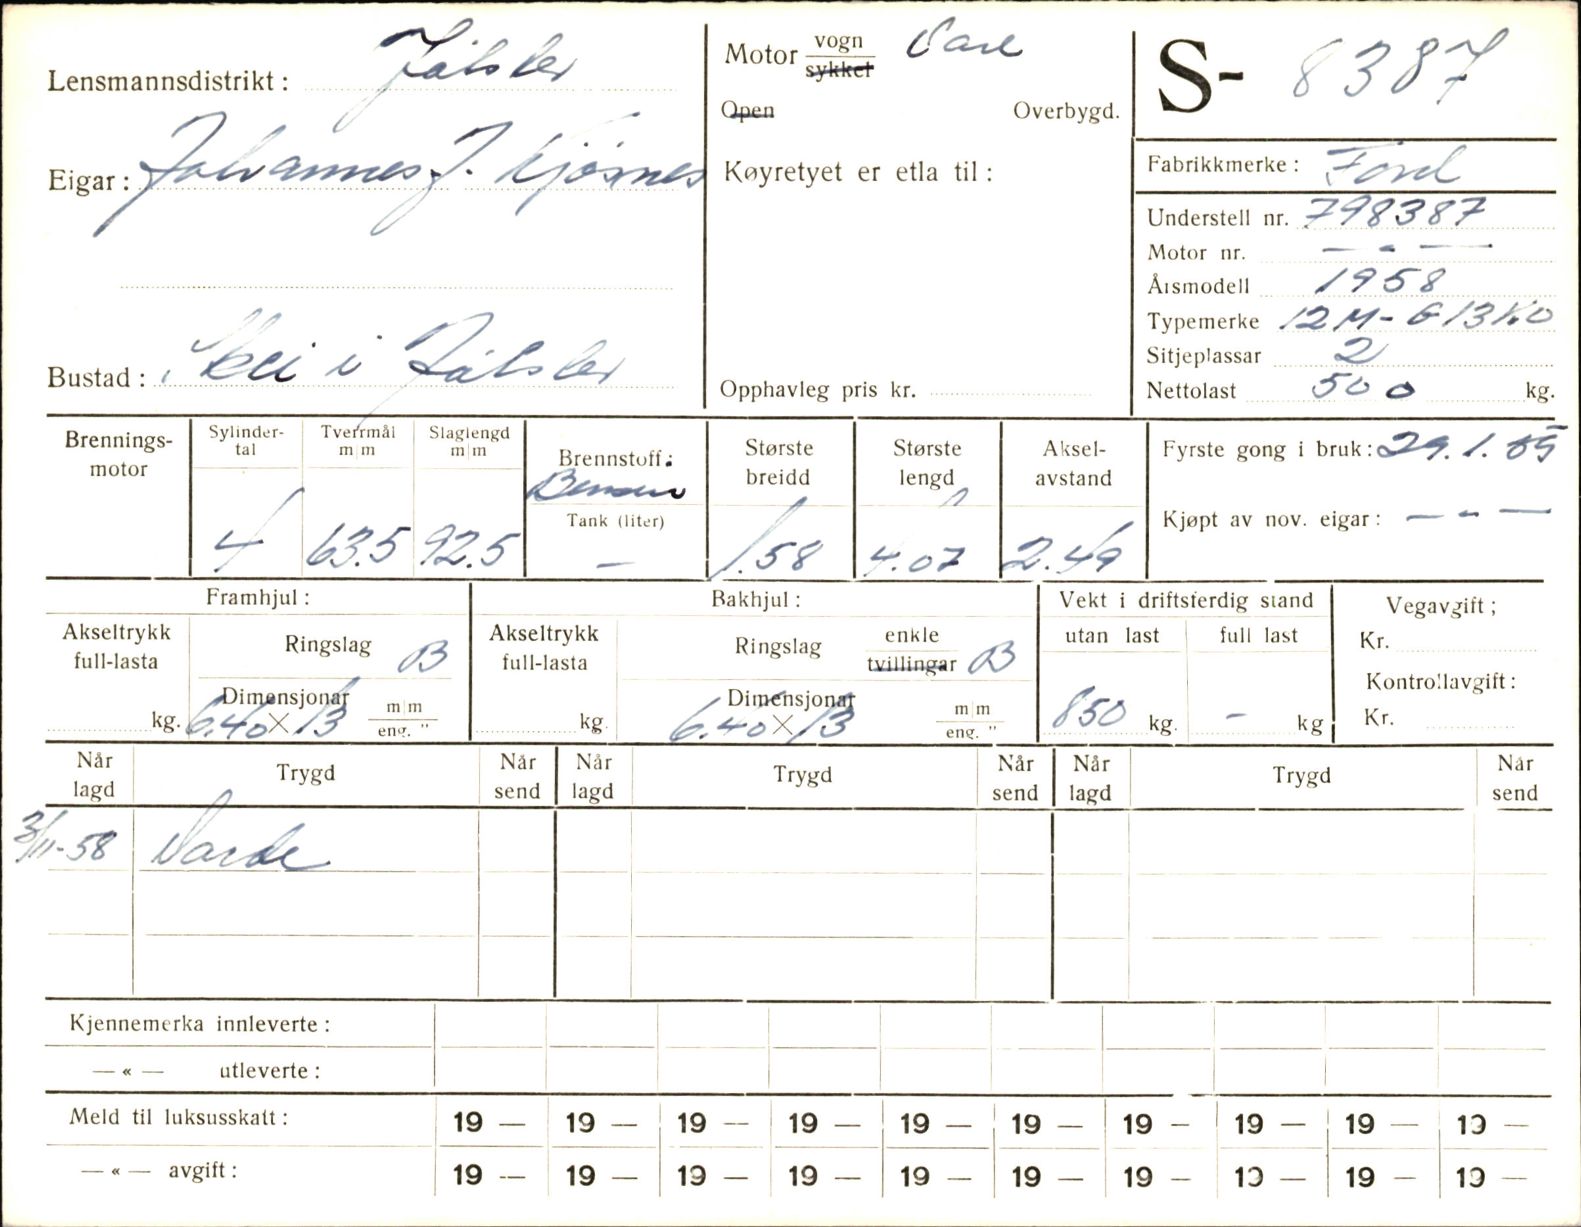 Lensmannsdistrikt: Jølster
Eigar: Johannes J. Kjøsnes
Bustad: Skei i Jølster
Motor vogn Vare
sykkel
Open Overbygd.
Køyretyet er etla til:
Opphavleg pris kr.
S- 8387
Fabrikkmerke: Ford
Understell nr. 798387
Motor nr. — " —
Årsmodell 1958
Typemerke 12M-G13K0
Sitjeplassar 2
Nettolast 500 kg.
Brennings-
motor
Sylinder-
tal
4
Tverrmål
m|m
63.5
Slaglengd
m|m
92.5
Brennstoff:
Bensin
Tank (liter)
—
Største
breidd
1.58
Største
lengd
4.07
Aksel-
avstand
2.49
Fyrste gong i bruk: 29.1.
Kjøpt av nov. eigar: — " —
Framhjul:
Akseltrykk
full-lasta
kg.
Ringslag B
Dimensjonar
6.40 × 13 m|m
eng. "
Bakhjul:
Akseltrykk
full-lasta
kg.
Ringslag enkle
tvillingar B
Dimensjonar
6.40 × 13 m|m
eng. "
Vekt i driftsferdig stand
utan last full last
850 kg. — kg
Vegavgift;
Kr.
Kontrollavgift:
Kr.
Når
lagd Trygd Når
send Når
lagd Trygd Når
send Når
lagd Trygd Når
send
3/11-58 Varde
Kjennemerka innleverte:
— « — utleverte:
Meld til luksusskatt: 19 — 19 — 19 — 19 — 19 — 19 — 19 — 19 — 19 — 19 —
— « — avgift: 19 — 19 — 19 — 19 — 19 — 19 — 19 — 19 — 19 — 19 —